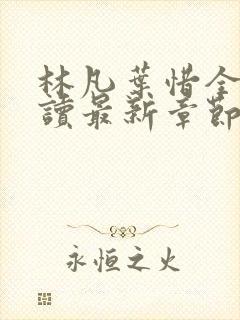 林凡葉惜全
讀最新章節
永恒之火